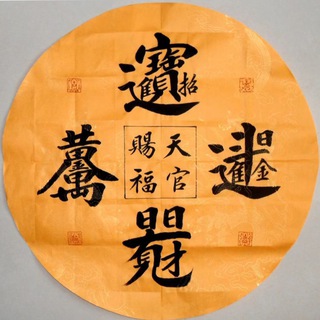 招財進寶
日進斗金
日日見財
黃金萬兩
天官
賜福